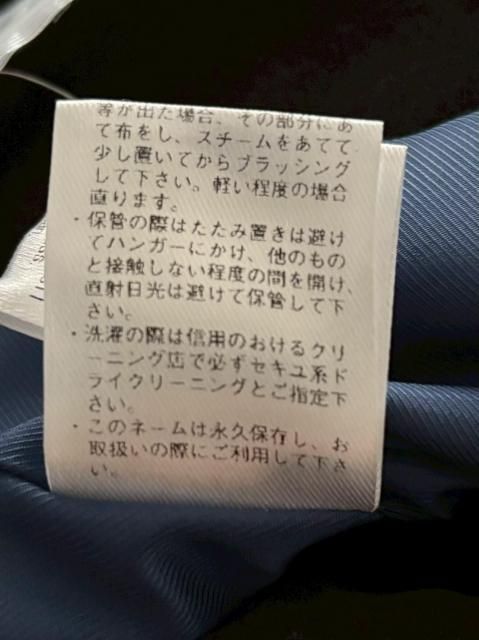 等が出た場合、その部分にあ
て布をし、スチームをあてて
少し置いてからブラッシング
して下さい。軽い程度の場合
直ります。
・保管の際はたたみ置きは避け
てハンガーにかけ、他のもの
と接触しない程度の間を開け、
直射日光は避けて保管して下
さい。
・洗濯の際は信用のおけるクリ
ーニング店で必ずセキユ系ド
ライクリーニングとご指定下
さい。
・このネームは永久保存し、お
取扱いの際にご利用して下さ
い。